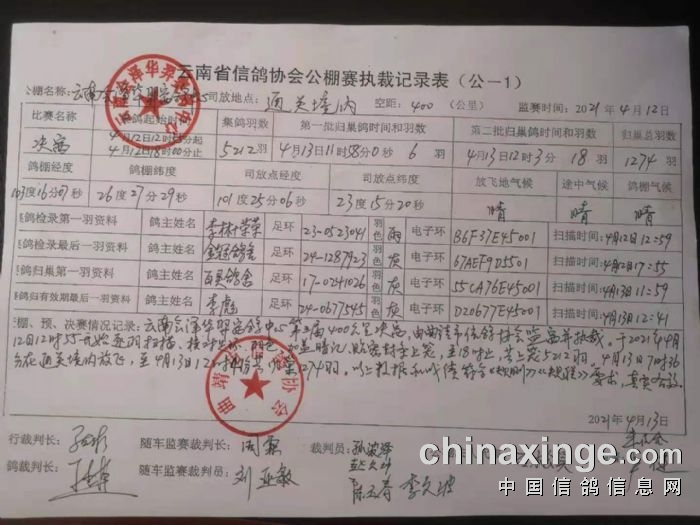 云南省信鸽协会公棚赛执裁记录表(公一1)
棚名称: 司放地点: 通关境内 空距: 400 (公里) 监赛时间: 2021年4月12日
比赛名称 鸽起始时 集鸽羽数 第一批归巢鸽时间和羽数 第二批归巢鸽时间和羽数 归巢总羽数
决赛 4月12日12时55分起 4月12日18时00分止 5212羽 4月13日11时58分0秒 6羽 4月13日12时3分 18羽 1274羽
鸽棚经度 鸽棚纬度 司放点经度 司放点纬度 放飞地气候 途中气候 鸽棚气候
103度16分07秒 26度27分29秒 101度25分06秒 23度15分20秒 晴 晴 晴
鸽检录第一羽资料 鸽主姓名 李树荣 足环 23-0523041 羽色 雨 电子环 B6F37E45001 扫描时间:4月12日12:59
鸽检录最后一羽资料 鸽主姓名 金冠鸽舍 足环 24-1287923 羽色 灰 电子环 67AEF9D5501 扫描时间:4月12日17:55
鸽归巢第一羽资料 鸽主姓名 足环 17-0241026 羽色 灰 电子环 55CA76E45001 扫描时间:4月13日11:59
鸽归有效期最后一羽资料 鸽主姓名 李彪 足环 24-0677545 羽色 灰 电子环 D20677E45001 扫描时间:4月13日12:41
棚、预、决赛情况记录: 云南会泽华翌赛鸽中心第三届400公里决赛,由曲靖市信鸽协会监赛并执裁。于2021年4月
12日12时55开始逐羽扫描、核对足环、羽色、加盖暗记、贴密封条上笼,至18时止,共上笼5212羽。4月13日7时36
分在通关境内放飞,至4月13日12时 1274羽。以上执裁和成绩符合《规则》《规程》要求,真实有效。
曲靖市信鸽协会
2021年4月13日
行裁判长: 随车监赛裁判长: 周磊 裁判员: 孙波泽
鸽裁判长: 随车监赛裁判员: 刘亚敏 陈玉春 李久波
chinaxinge.com
中国信鸽信息网